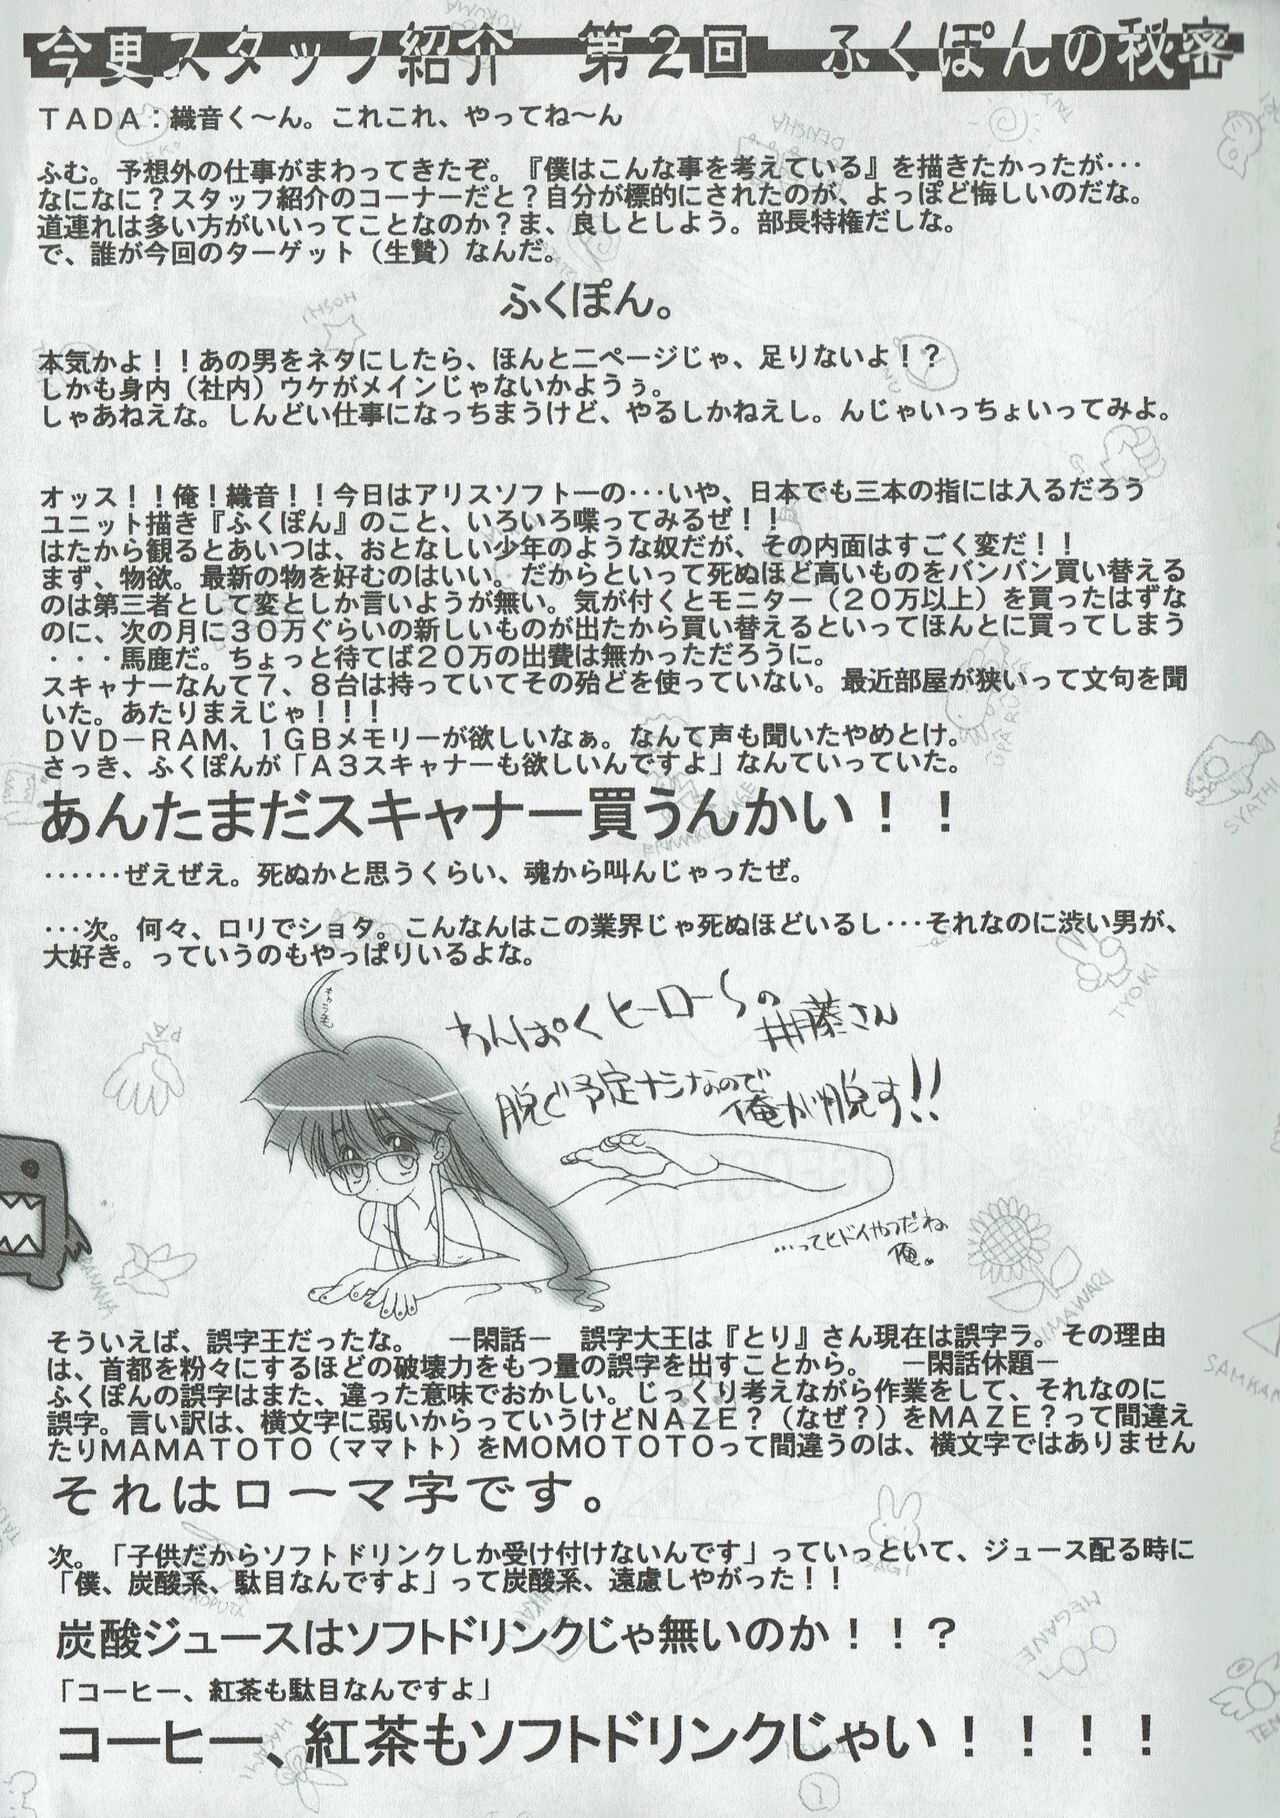 今更スタッフ紹介　第２回　ふくぽんの秘密
ＴＡＤＡ：織音く～ん。これこれ、やってね～ん
ふむ。予想外の仕事がまわってきたぞ。『僕はこんな事を考えている』を描きたかったが・・・
なになに？スタッフ紹介のコーナーだと？自分が標的にされたのが、よっぽど悔しいのだな。
道連れは多い方がいいってことなのか？ま、良しとしよう。部長特権だしな。
で、誰が今回のターゲット（生贄）なんだ。
ふくぽん。
本気かよ！！あの男をネタにしたら、ほんと二ページじゃ、足りないよ！？
しかも身内（社内）ウケがメインじゃないかようぅ。
しゃあねえな。しんどい仕事になっちまうけど、やるしかねえし。んじゃいっちょいってみよ。
オッス！！俺！織音！！今日はアリスソフト一の・・・いや、日本でも三本の指には入るだろう
ユニット描き『ふくぽん』のこと、いろいろ喋ってみるぜ！！
はたから観るとあいつは、おとなしい少年のような奴だが、その内面はすごく変だ！！
まず、物欲。最新の物を好むのはいい。だからといって死ぬほど高いものをバンバン買い替える
のは第三者として変としか言いようが無い。気が付くとモニター（２０万以上）を買ったはずな
のに、次の月に３０万ぐらいの新しいものが出たから買い替えるといってほんとに買ってしまう
・・・馬鹿だ。ちょっと待てば２０万の出費は無かっただろうに。
スキャナーなんて７、８台は持っていてその殆どを使っていない。最近部屋が狭いって文句を聞
いた。あたりまえじゃ！！！
ＤＶＤ－ＲＡＭ、１ＧＢメモリーが欲しいなぁ。なんて声も聞いたやめとけ。
さっき、ふくぽんが「Ａ３スキャナーも欲しいんですよ」なんていっていた。
あんたまだスキャナー買うんかい！！
・・・・・・ぜえぜえ。死ぬかと思うくらい、魂から叫んじゃったぜ。
・・・次。何々、ロリでショタ。こんなんはこの業界じゃ死ぬほどいるし・・・それなのに渋い男が、
大好き。っていうのもやっぱりいるよな。
わんぱくヒーローSの
井藤さん
脱ぐ予定ナシなので
俺が脱す!!
…ってヒドイやつだね
俺。
そういえば、誤字王だったな。　－閑話－　誤字大王は『とり』さん現在は誤字ラ。その理由
は、首都を粉々にするほどの破壊力をもつ量の誤字を出すことから。　－閑話休題－
ふくぽんの誤字はまた、違った意味でおかしい。じっくり考えながら作業をして、それなのに
誤字。言い訳は、横文字に弱いからっていうけどＮＡＺＥ？（なぜ？）をＭＡＺＥ？って間違え
たりＭＡＭＡＴＯＴＯ（ママトト）をＭＯＭＯＴＯＴＯって間違うのは、横文字ではありません
それはローマ字です。
次。「子供だからソフトドリンクしか受け付けないんです」っていっといて、ジュース配る時に
「僕、炭酸系、駄目なんですよ」って炭酸系、遠慮しやがった！！
炭酸ジュースはソフトドリンクじゃ無いのか！！？
「コーヒー、紅茶も駄目なんですよ」
コーヒー、紅茶もソフトドリンクじゃい！！！！
DENSHA
HOSHI
UPARUPA
SYATHI
TYOKI
BANANA
HIMAWARI
MEGANE